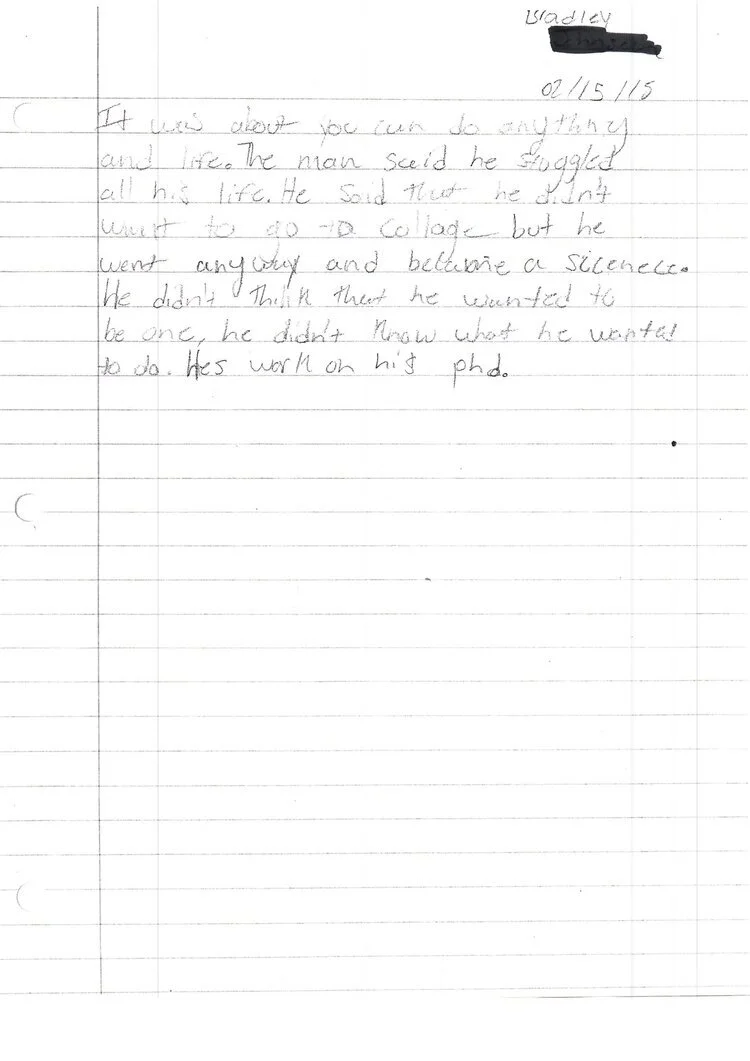 Bradley
02/15/15
It was about you can do anything
and life. The man said he stuggled
all his life. He said that he didn't
want to go to collage but he
went anyway and became a sicenece.
He didn't think that he wanted to
be one, he didn't know what he wanted
to do. Hes work on his phd.